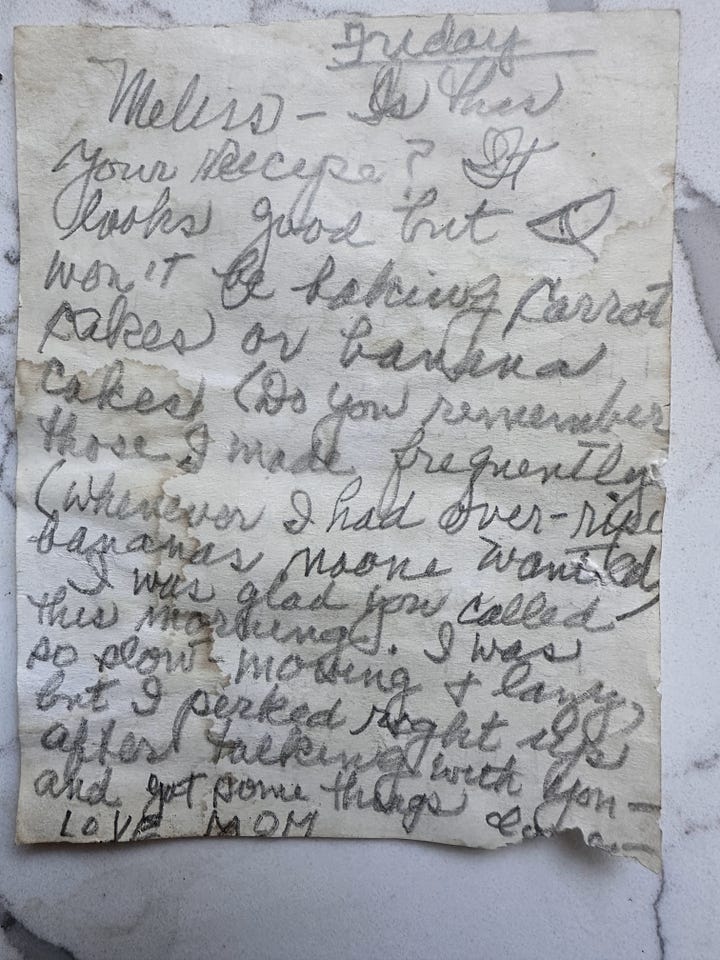 Friday
Meliss - Is this
your recipe? It
looks good but I
won't be baking carrot
cakes or banana
cakes (Do you remember
those I made frequently
(Whenever I had over-ripe
bananas noone wanted)
I was glad you called
this morning. I was
so slow-moving & lazy,
but I perked right up
after talking with you -
and got some things done -
LOVE MOM